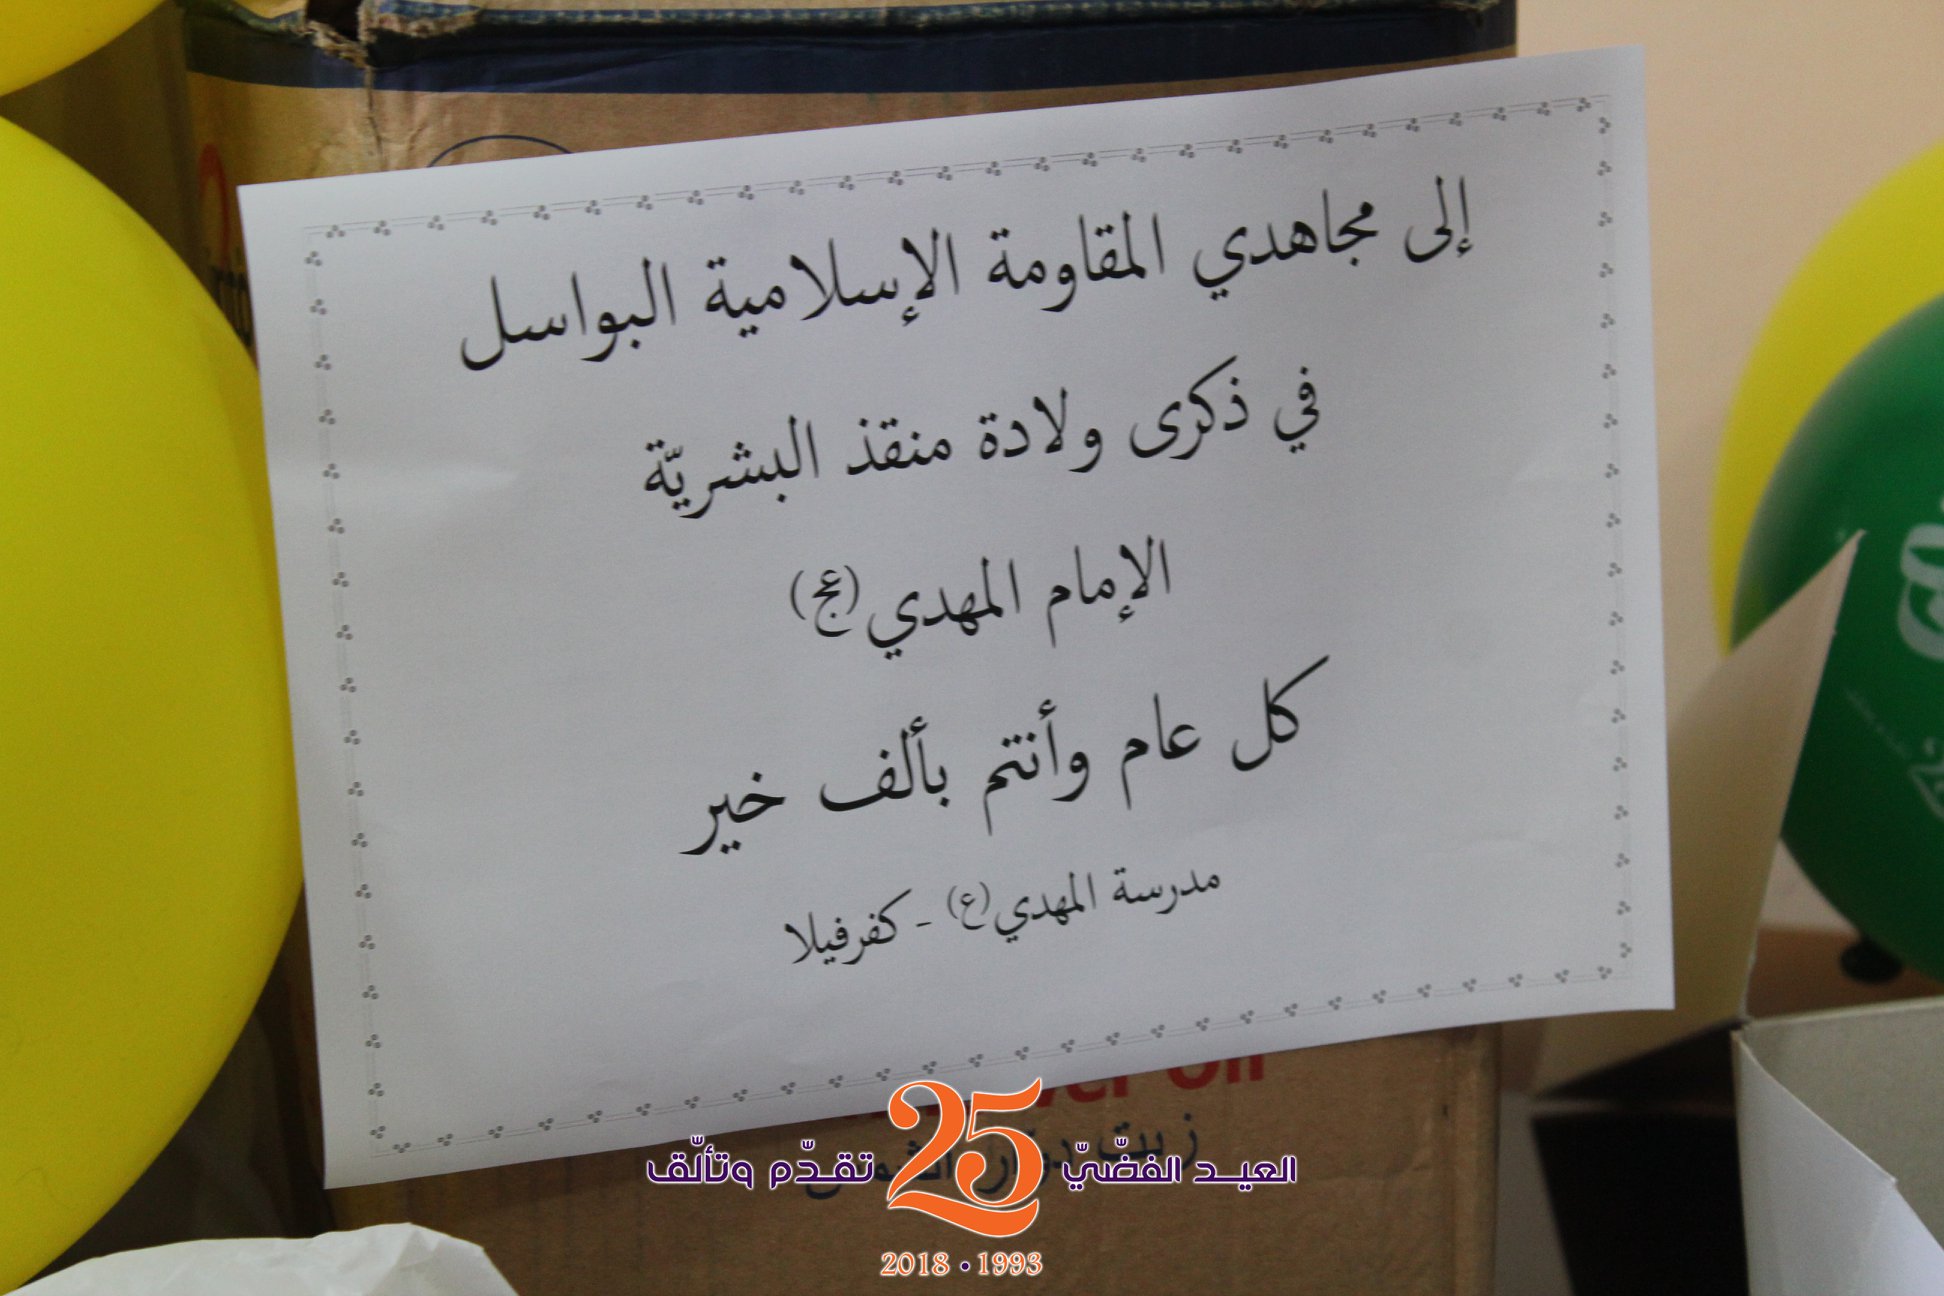 إلى مجاهدي المقاومة الإسلامية البواسل
في ذكرى ولادة منقذ البشريّة
الإمام المهدي (عج)
كل عام وأنتم بألف خير
مدرسة المهدي (ع) - كفرفيلا
Oil
زيت دوار الشمس
العيد الفضّيّ 25 تقدّم وتألّق
2018 • 1993